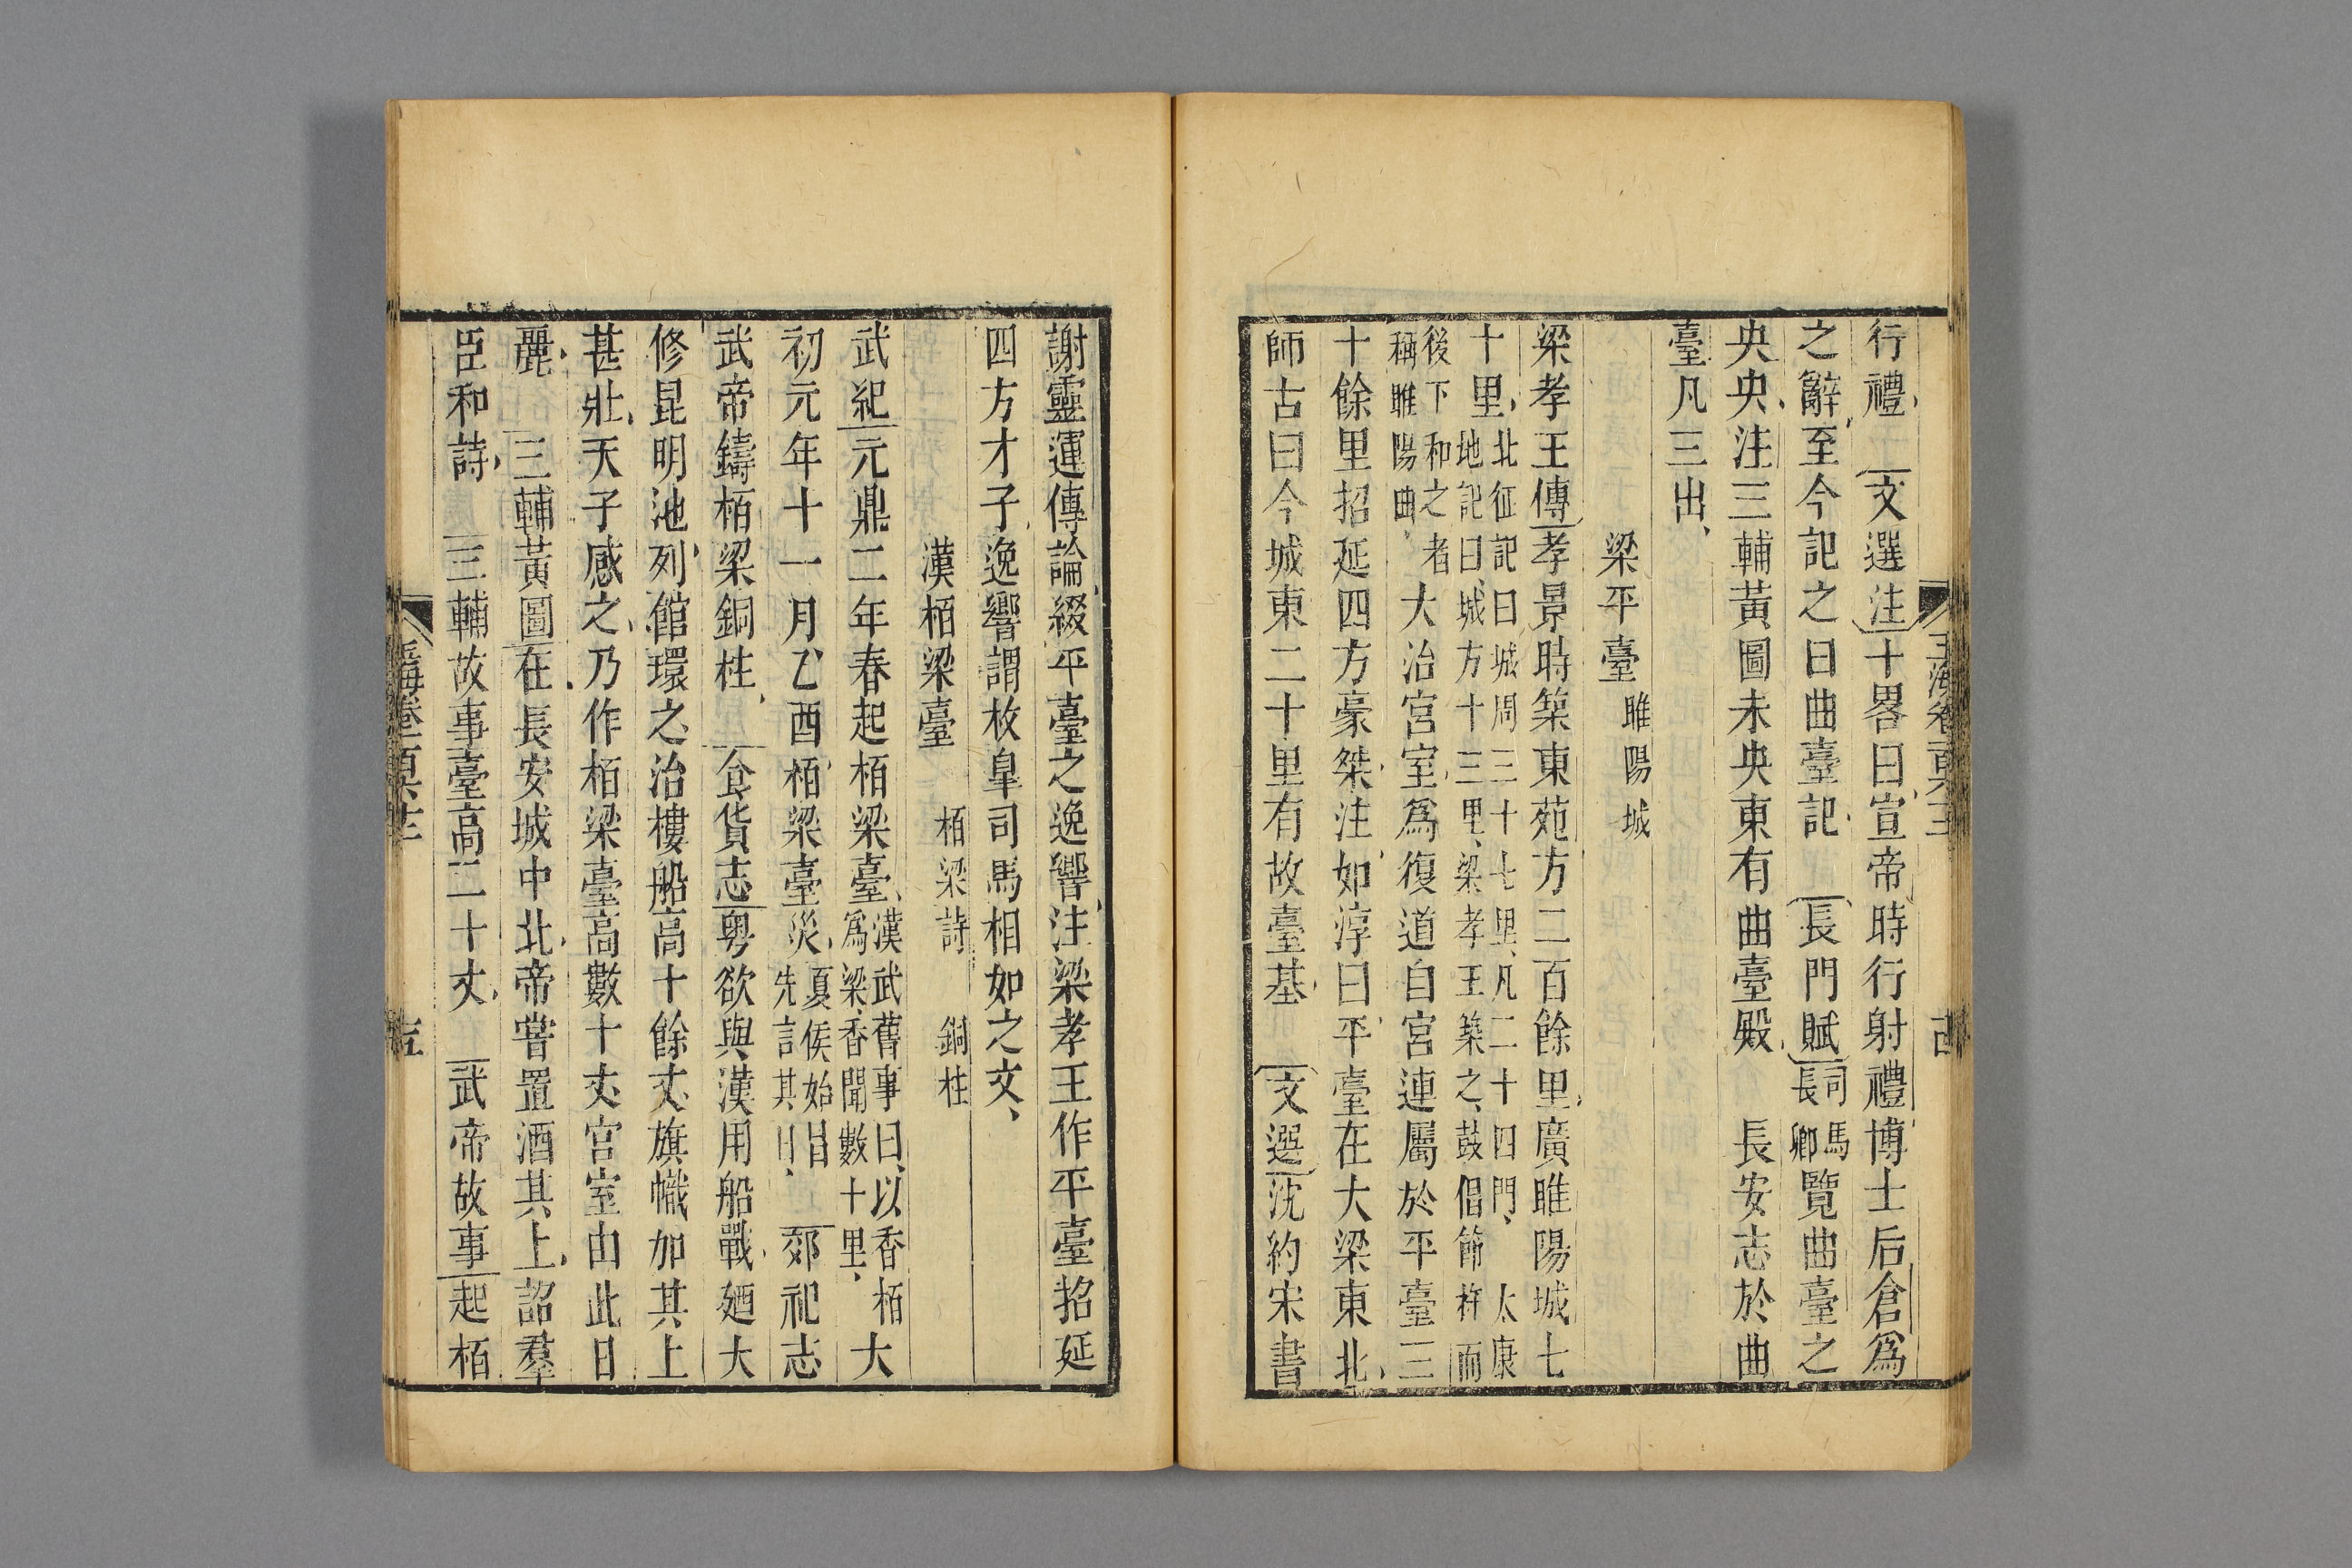 行禮文選注十畧曰宣帝時行射禮博士后倉爲
之辭至今記之曰曲臺記長門賦司馬長卿覽曲臺之
央央注三輔黃圖未央東有曲臺殿長安志於曲
臺凡三出
梁平臺睢陽城
梁孝王傳孝景時築東苑方二百餘里廣睢陽城七
十里北征記曰城周三十七里凡二十四門太康地記曰城方十三里梁孝王築之鼓倡節杵而
後下和之者稱睢陽曲大治宮室爲復道自宮連屬於平臺三
十餘里招延四方豪桀注如淳曰平臺在大梁東北
師古曰今城東二十里有故臺基文選沈約宋書
謝靈運傳論綴平臺之逸響注梁孝王作平臺招延
四方才子逸響謂枚臯司馬相如之文
漢栢梁臺栢梁詩銅柱
武紀元鼎二年春起栢梁臺漢武舊事曰以香栢爲梁香聞數十里大
初元年十一月乙酉栢梁臺災夏侯始昌先言其日郊祀志
武帝鑄栢梁銅柱食貨志粤欲與漢用船戰廼大
修昆明池列館環之治樓船高十餘丈旗幟加其上
甚壯天子感之乃作栢梁臺高數十丈宮室由此日
麗三輔黃圖在長安城中北帝嘗置酒其上詔羣
臣和詩三輔故事臺高二十丈武帝故事起栢